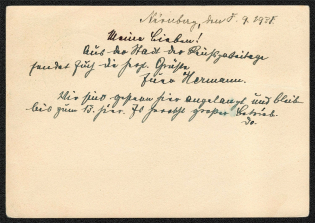 Nürnberg, den 8.9.1938
Meine Lieben!
Aus der Stadt der Reichsparteitage
sendet Euch die herzl. Grüße
Euer Hermann.
Wir sind gestern hier angelangt und bleib
bis zum 13. hier. Es herrscht großer Betrieb
do.